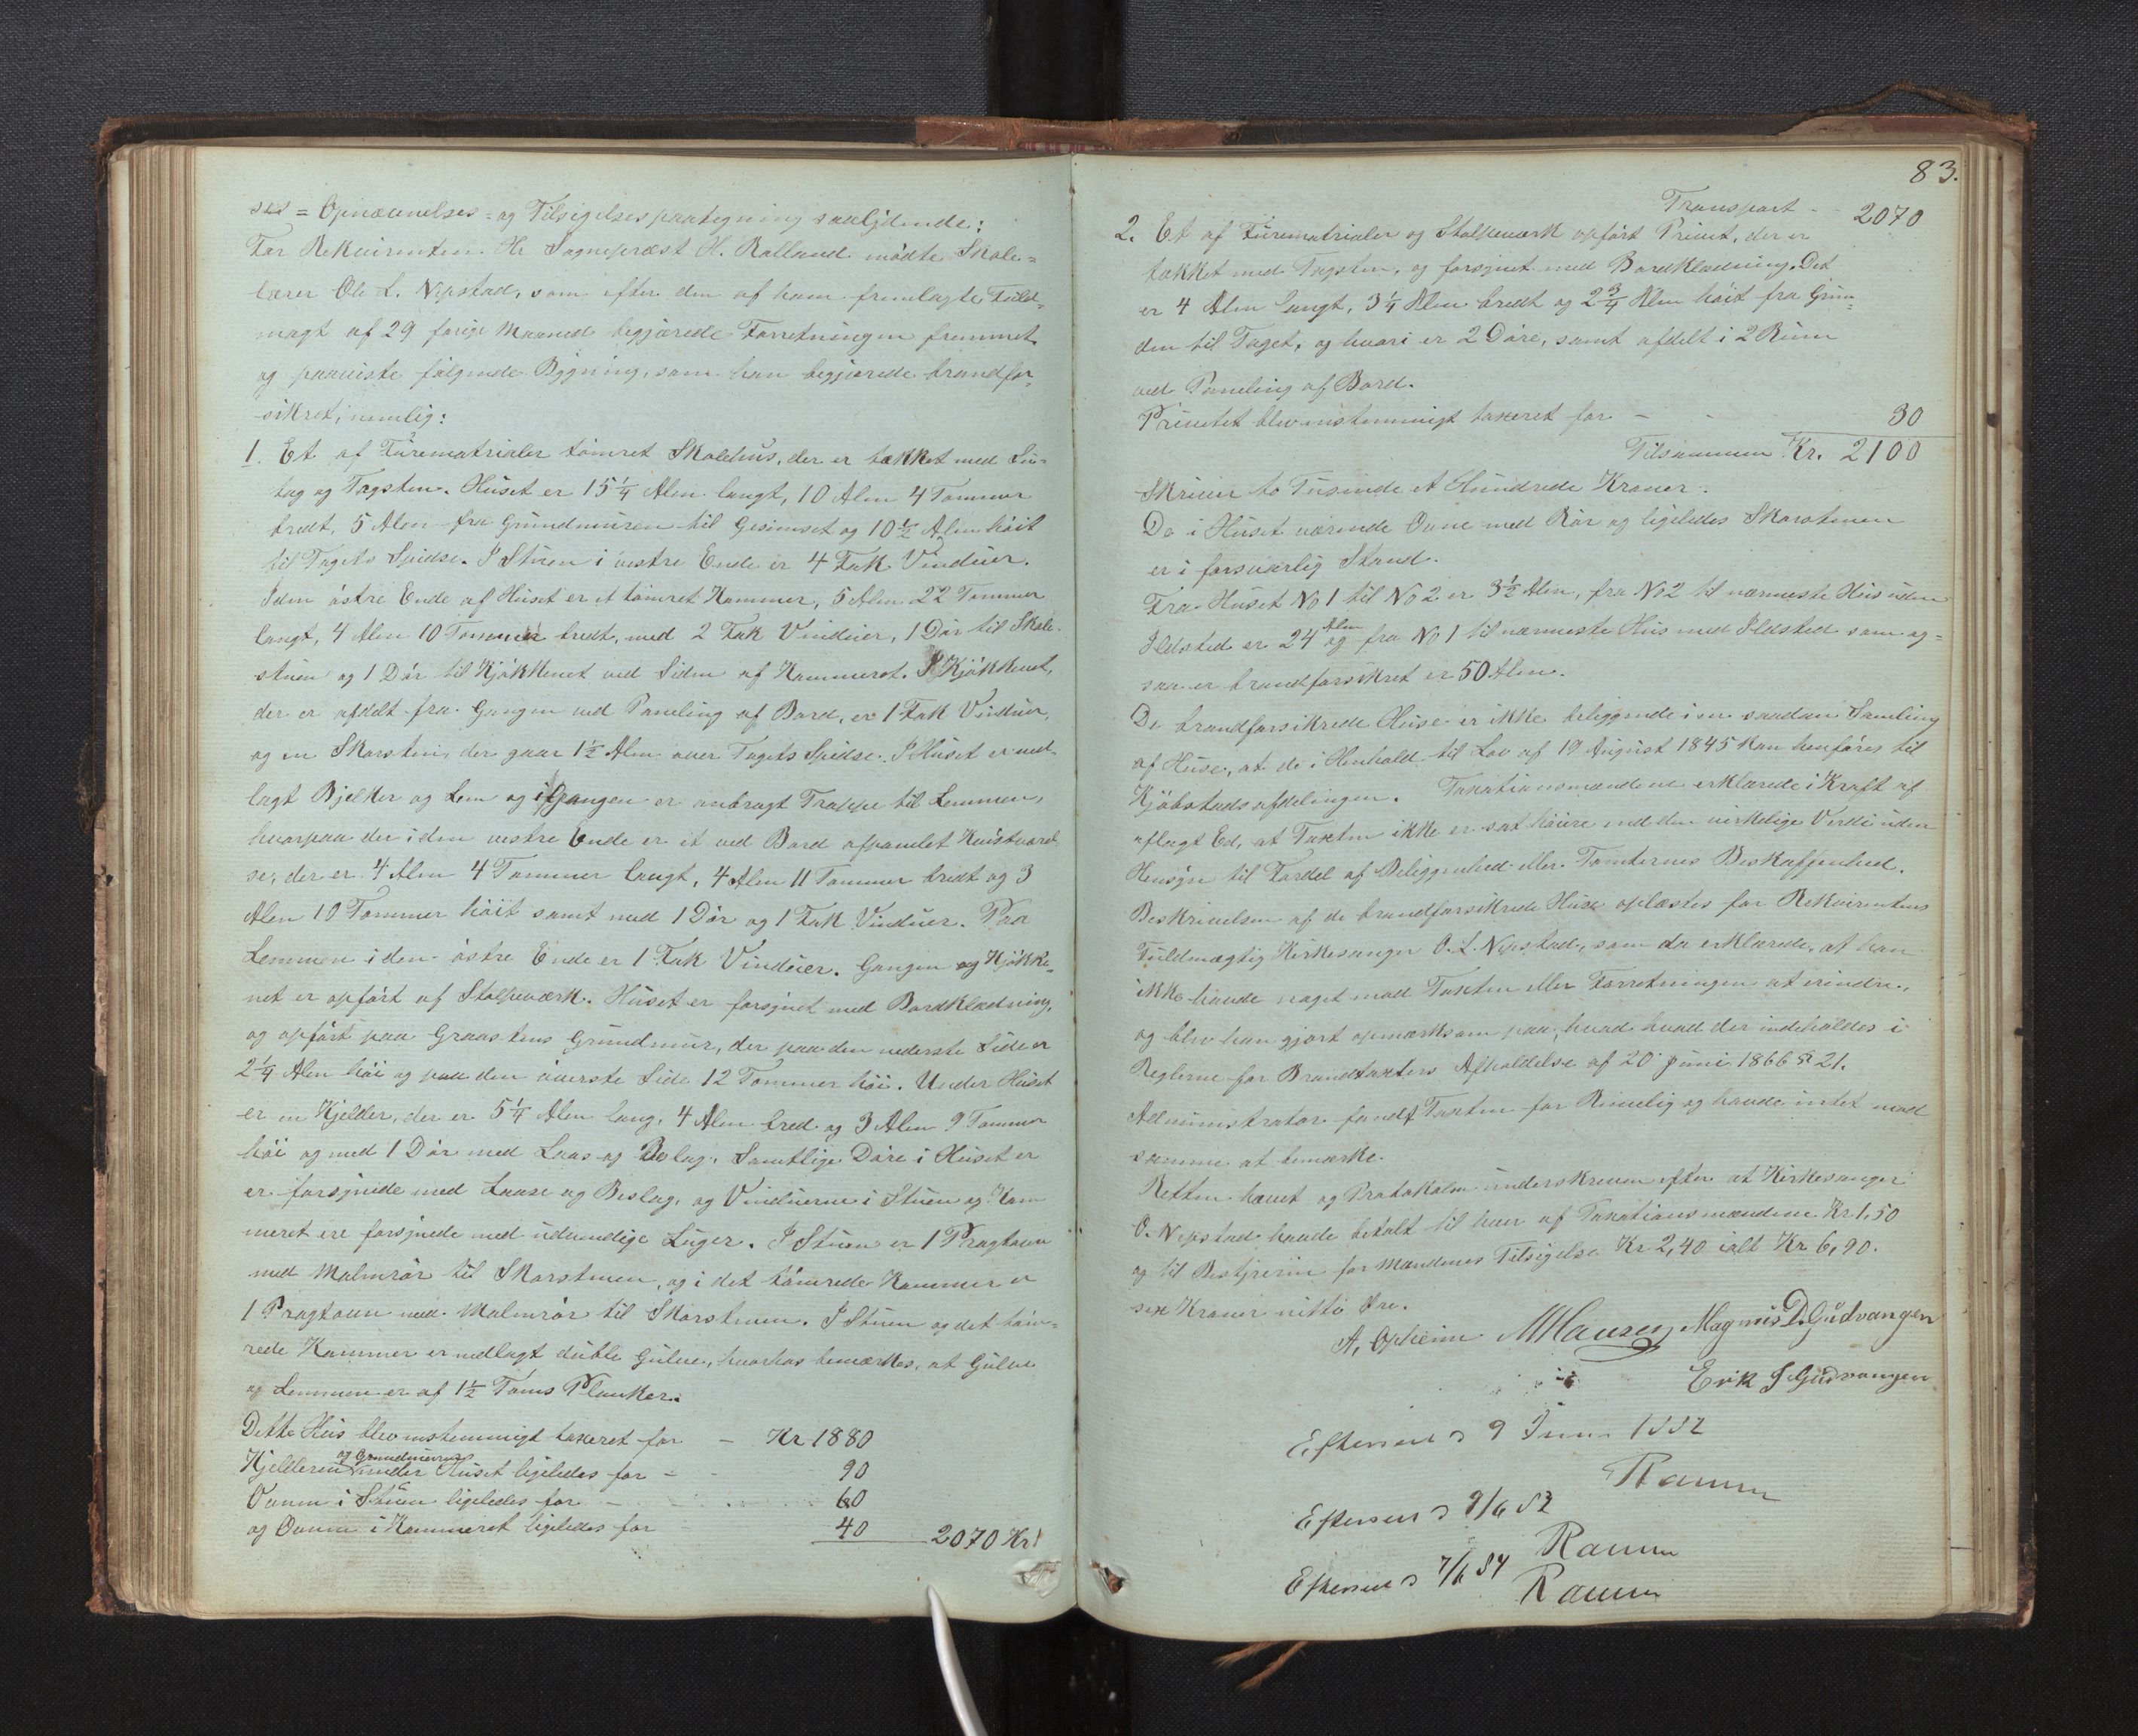 ses=Opnævnelses= og Tilsigelsespaategning saalydende:
For Rekvirenten Hr Sognepræst H. Ralland mødte Skole=
lærer Ole L. Nepstad, som efter den af ham fremlagte Fuld=
magt af 29 forige Maaned begjærede Forretningen fremmet
og paaviste følgende Bygning, som han begjærede brandfor=
sikret, nemlig:
1. Et af Furematrialer tømret Skolehus, der er tækket med
tag og Tagsten. Huset er 15 1/4 Alen langt, 10 Alen 4 Tommer
bredt, 5 Alen fra Grundmuren til Gesimset og 10 1/2 Alen høit
til Tagets Spidse. I Stuen i vestre Ende er 4 Fak Vinduer.
I den østre Ende af Huset er et tømret Kammer, 5 Alen 22 Tommer
langt, 4 Alen 10 Tommer bredt, med 2 Fak Vinduer, 1 Dør til Skole-
stuen og 1 Dør til Kjøkkenet ved Siden af Kammeret. I Kjøkkenet,
der er afdelt fra Gangen ved Paneling af Bord, er 1 Fak Vinduer,
og en Skorsten, der gaar 1 1/2 Alen over Tagets Spidse. I Huset er ned-
lagt Bjelker og Lem og i Gangen er anbragt Trappe til Lemmen,
hvorpaa der i den vestre Ende er et ved Bord afpanelet Kvistværel
se, der er 4 Alen 4 Tommer langt, 4 Alen 11 Tommer bredt og 3
Alen 19 Tommer høit samt med 1 Dør og 1 Fak Vinduer. Paa
Lemmen i den østre Ende er 1 Fak Vinduer. Gangen og Kjøkke=
net er opført af Stolpeværk. Huset er forsynet med Bordklædning,
og opført paa Graastens Grundmur, der paa den nederste Side er
2 1/4 Alen høi og paa den øverste Side 12 Tommer høi. Under Huset
er en Kjelder, der er 5 1/4 Alen lang, 4 Alen bred og 3 Alen 9 Tommer
høi og med 1 Dør med Laas og Beslag. Samtlige Døre i Huset er
er forsynede med Laase og Beslag, og Vinduerne i Stuen og Kam
meret ere forsynede med udvendige Luger. I Stuen er 1 Pragtovn
med Malmrør til Skorstenen, og i det tømrede Kammer er
1 Pragtovn med Malmrør til Skorstenen. I Stuen og det tøm=
rede Kammer er nedlagt duble Gulve, hvorhos bemærkes, at Gulve
og Lemmen er af 1 1/2 Toms Planker.
Dette Hus blev enstemmigt taxeret for - Kr 1880
Kjelderen og Grundmuren under Huset ligeledes for - 90
Ovnen i Stuen ligeledes for - 60
og Ovnen i Kammeret ligeledes for 40 2070 Kr
83.
Transport - - 2070
2. Et af Furematrialer og Stolpeværk opført Privet, der er
tækket med Tagsten, og forsynet med Bordklædning. Det
er 4 Alen langt, 3 1/4 Alen bredt og 2 3/4 Alen høit fra Grun=
den til Taget, og hvori er 2 Døre, samt afdelt i 2 Rum
ved Paneling af Bord.
Privetet blev enstemmigt taxeret for - - 30
Tilsammen Kr. 2100
Skriver to Tusinde et Hundrede Kroner.
De i Huset værende Ovne med Rør og ligeledes Skorstenen
er i forsvarlig Stand.
Fra Huset No 1 til No 2 er 3 1/2 Alen, fra No 2 til nærmeste Hus uden
Ildsted er 24 Alen og fra No 1 til nærmeste Hus med Ildsted som og=
saa er brandforsikret er 50 Alen.
De brandforsikrede Huse er ikke beliggende i en saadan Samling
af Huse, at de i Henhold til Lov af 19 August 1845 kan henføres til
Kjøbstadsafdelingen. Taxationsmændene erklærede i Kraft af
aflagt Ed, at Taxten ikke er sat høiere end den virkelige Verdi uden
Hensyn til Fordel af Beliggenhed eller Tomternes Beskaffenhed.
Beskrivelsen af de brandforsikrede Huse oplæstes for Rekvirentens
Fuldmægtig Kirkesanger O. L. Nepstad, som da erklærede, at han
ikke havde noget mod Taxten eller Forretningen at erindre,
og blev han gjort opmærksom paa, hvad hvad der indeholdes i
Reglerne for Brandtaxters Afholdelse af 20 Juni 1866 § 21.
Administrator fandt Taxten for Rimelig og havde intet mod
samme at bemærke.
Retten hævet og Protokollen underskreven efter at Kirkesanger
O. Nepstad havde betalt til hver af Taxationsmændene Kr. 1,50
og til Bestyreren for Mændenes Tilsigelse Kr 2,40 ialt Kr 6,90.
sex Kroner nitti Øre.
A. Opheim MHausen Magnus D. Gudvangen
Erik S Gudvangen
Efterseet d 9 Juni 1882
Ramm
Efterseet d 9/6 83
Ramm
Efterseet d 7/6 84
Ramm